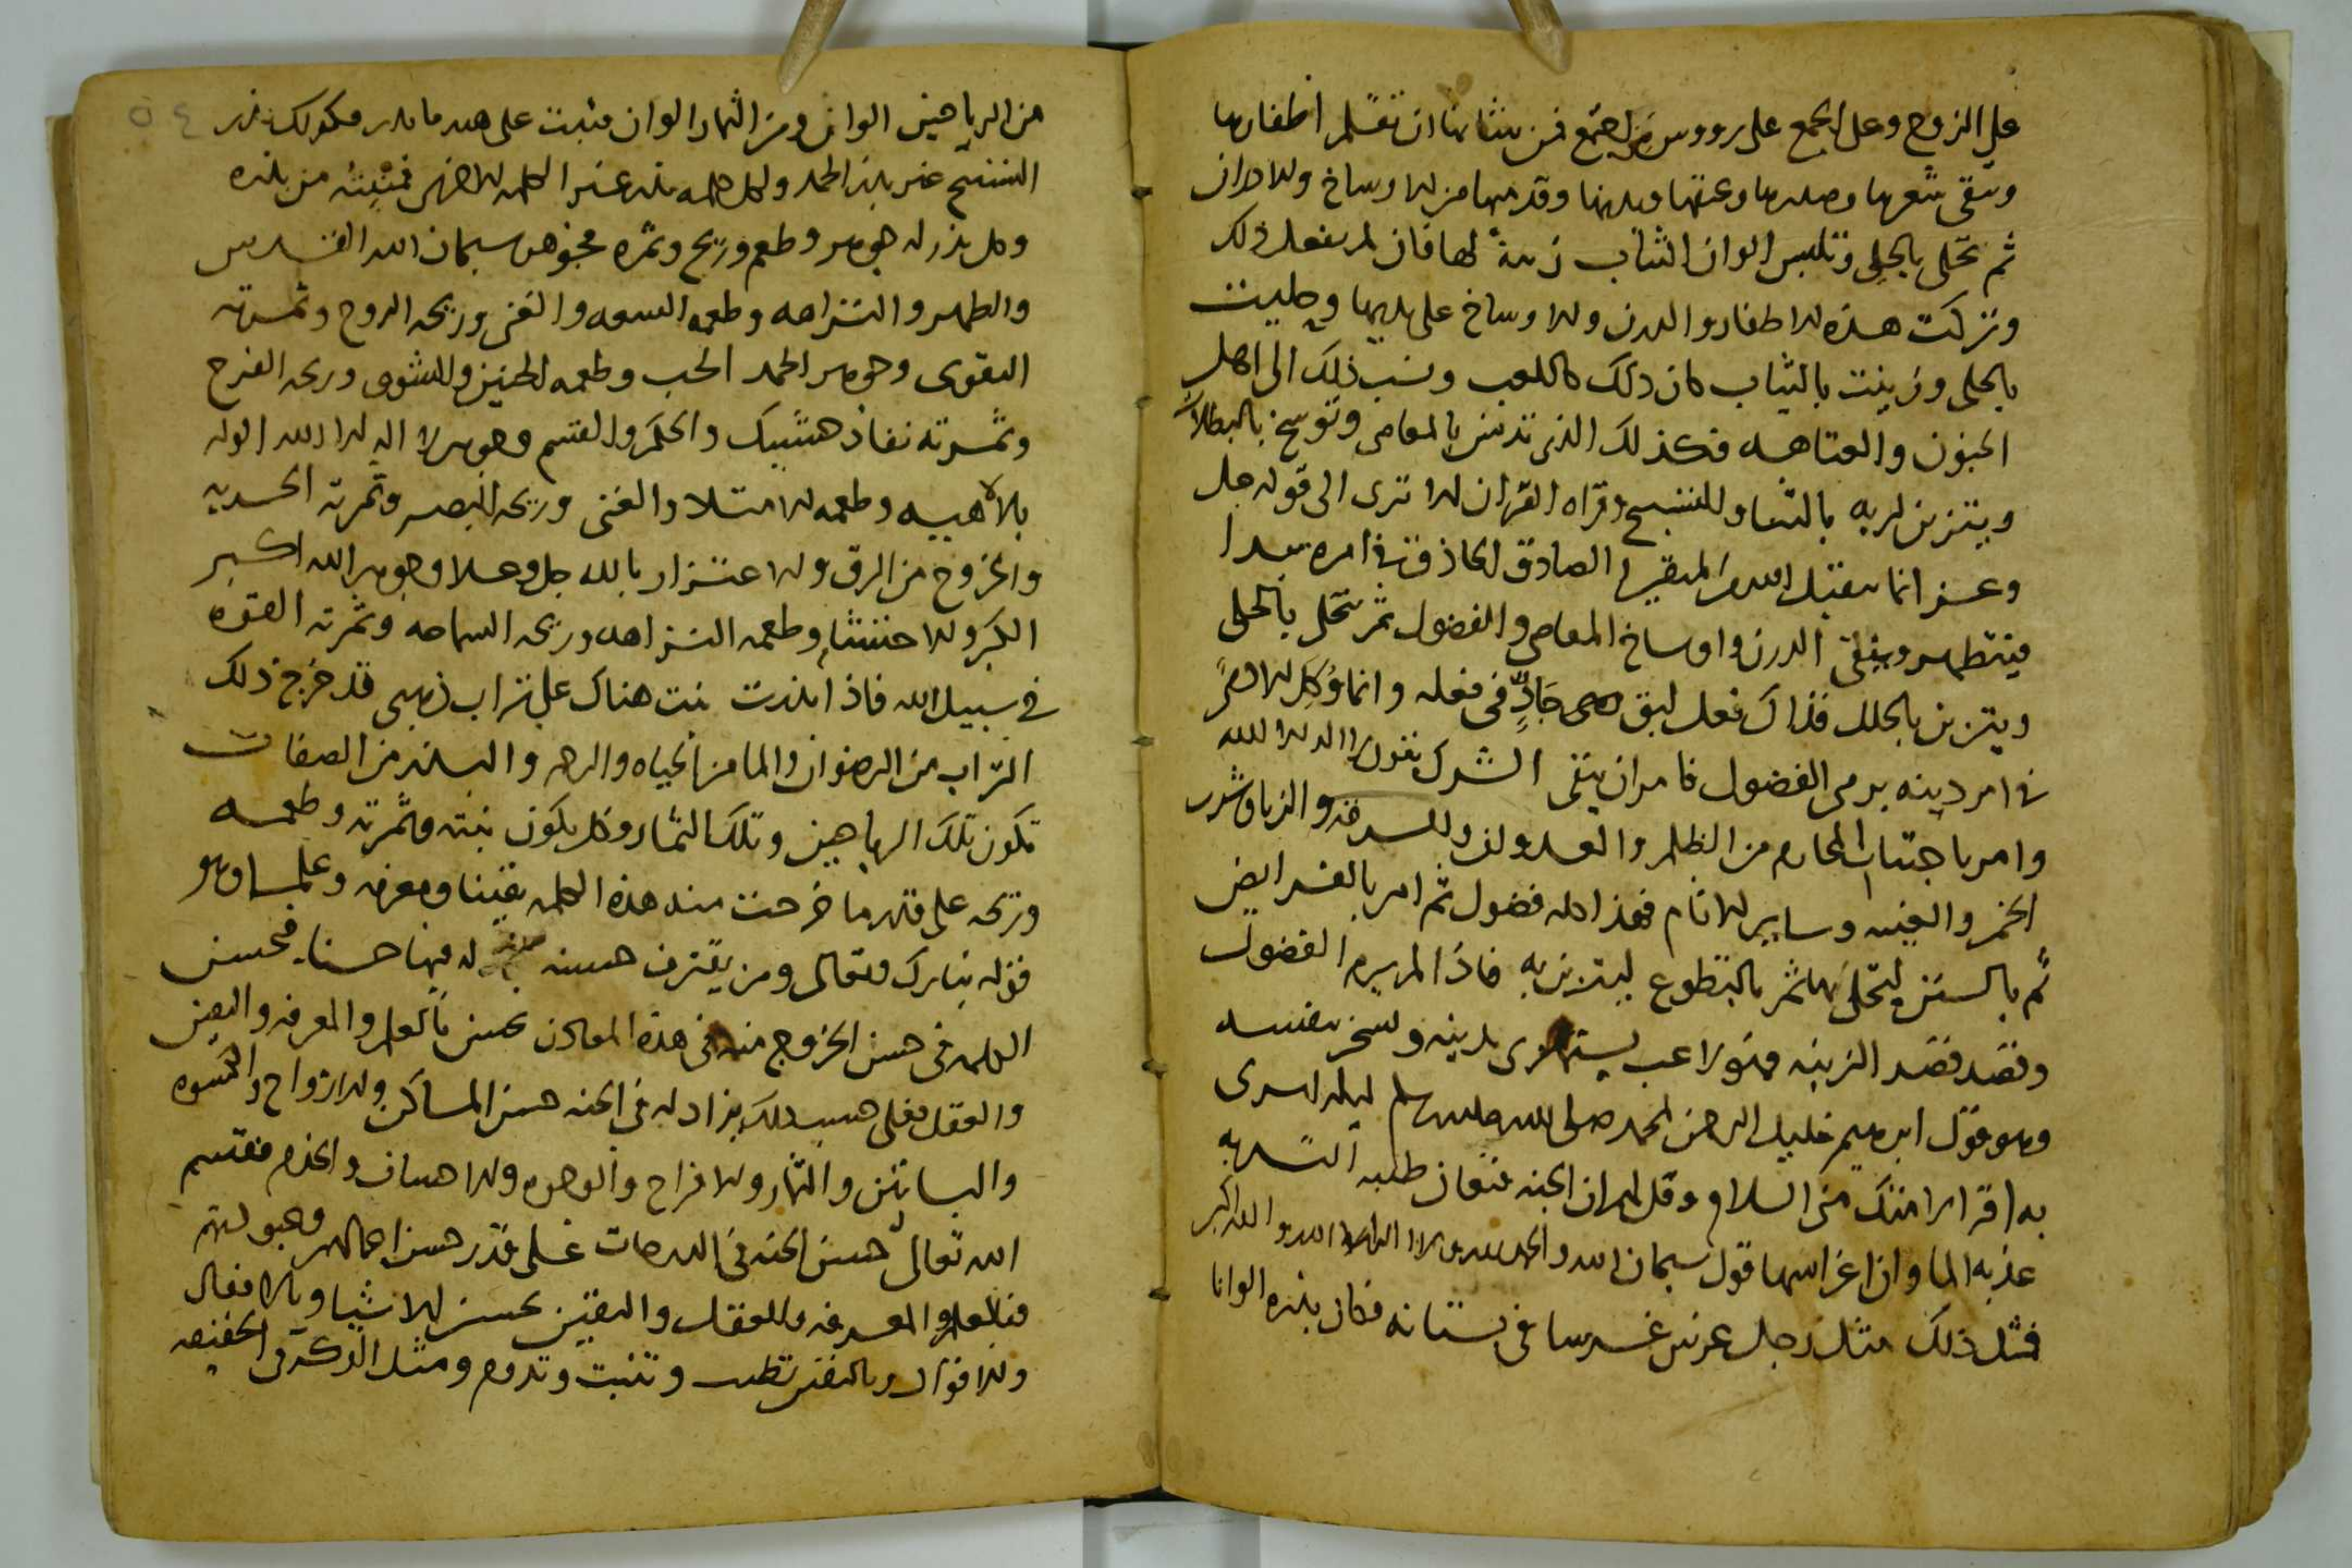 على الزوج وعلى الجمع على رووس من اجتمع فمن شانها ان تقلم اظفارها
وتنقى شعرها وصدرها وعنقها ويديها وقدميها من الاوساخ والادران
ثم تحلى بالحلى وتلبس الوان الثياب زينة لها فان لم يفعل ذلك
وتركت هذه الاظفار والدرن والاوساخ على يديها وحليت
بالحلى وزينت بالثياب كان ذلك كاللعب ونسب ذلك الى اهل
الجنون والعتاهه فكذلك الذى تدنس بالمعاصى وتوسخ بالبطالات
ويتزين لربه بالثنا والتسبيح وقراه القران الا ترى الى قوله جل
وعز انما يتقبل الله من المتقين الصادق الحاذق فى امره يبدا
فيتطهر وينقى الدرن واوساخ المعاصى والفضول ثم يتحلى بالحلى
ويتزين بالحلل فذاك فعل لبق جاد فى فعله وانما وكل الادمى
فى امر دينه برمى الفضول فامر ان ينقى الشرك بقول لا اله الا الله
وامر باجتناب المحارم من الظلم والعدوان والسرقه والزنا وشرب
الخمر والغيبه وساير الاثام فهذا كله فضول ثم امر بالفرايض
ثم بالسنن ليتحلى بها ثم بالتطوع ليتزين به فاذا لم يرم الفضول
وقصد قصد الزينه فهو لاعب يستهزى بدينه ويسخر بنفسه
وهو قول ابرهيم خليل الرحمن لمحمد صلى الله عليه وسلم ليله اسرى
به اقرا امتك منى السلام وقل لهم ان الجنه قيعان طيبه التربه
عذبه الما وان غراسها قول سبحان الله والحمد لله ولا اله الا الله والله اكبر
فمثل ذلك مثل رجل غرس غرسا فى بستانه فكان بذره الوانا
من الرياحين الوان ومن الثمار الوان فنبت على هذا ما بذر فكذلك بذر
التسبيح غير بذر الحمد ولكل كلمه بذر غير الكلمه الاخرى فنبته من بذره
وكل بذر له جوهر وطعم وريح وثمره فجوهر سبحان الله القدس
والطهر والنزاهه وطعمه السعه والغنى وريحه الروح وثمرته
التقوى وجوهر الحمد الحب وطعمه الحنين والشوق وريحه الفرح
وثمرته نفاذ والحكم والقسم وجوهر لا اله الا الله الوله
بالاهيته وطعمه الامتلا والغنى وريحه البصر وثمرته الحريه
والخروج من الرق والاعتزاز بالله جل وعلا وجوهر الله اكبر
الكبر والاحتشام وطعمه النزاهه وريحه السماحه وثمرته القوه
فى سبيل الله فاذا بذرت نبت هناك على تراب ذهبى قد خرج ذلك
التراب من الرضوان والما من الحياه والرحمه والبذر من الصفات
تكون تلك الرياحين وتلك الثمار وكل يكون نبته وثمرته وطعمه
وريحه على قدر ما خرجت منه هذه الكلمه يقينا ومعرفه وعلما وهو
قوله تبارك وتعالى ومن يقترف حسنه نزد له فيها حسنا فحسن
الكلمه فى حسن الخروج منه فى هذه المعادن بحسن بالعلم والمعرفه واليقين
والعقل فعلى حسب ذلك يزاد له فى الجنه حسن المساكن والازواج والكسوه
والبساتين والثمار والافراح والوجوه والاحسان والخدم فقسم
الله تعالى حسن الجنه فى الدرجات على قدر حسن اعمالهم وقبولهم
فبالعلم والمعرفه والعقل واليقين تحسن الاشيا وبالافعال
والاقوال وبالنفس تطيب وتثبت وتدوم ومثل الذكر فى الحقيقه